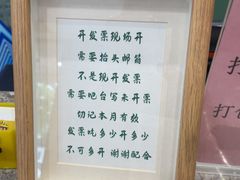 开发票现场开
需要抬头邮箱
不是现开发票
需要吧台写未开票
切记本月有效
发票吃多少开多少
不可多开 谢谢配合
打